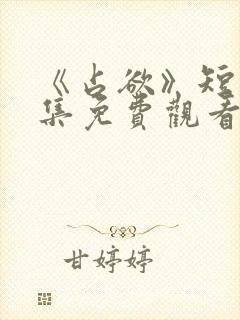 《占欲》短
集免費觀看
甘婷婷